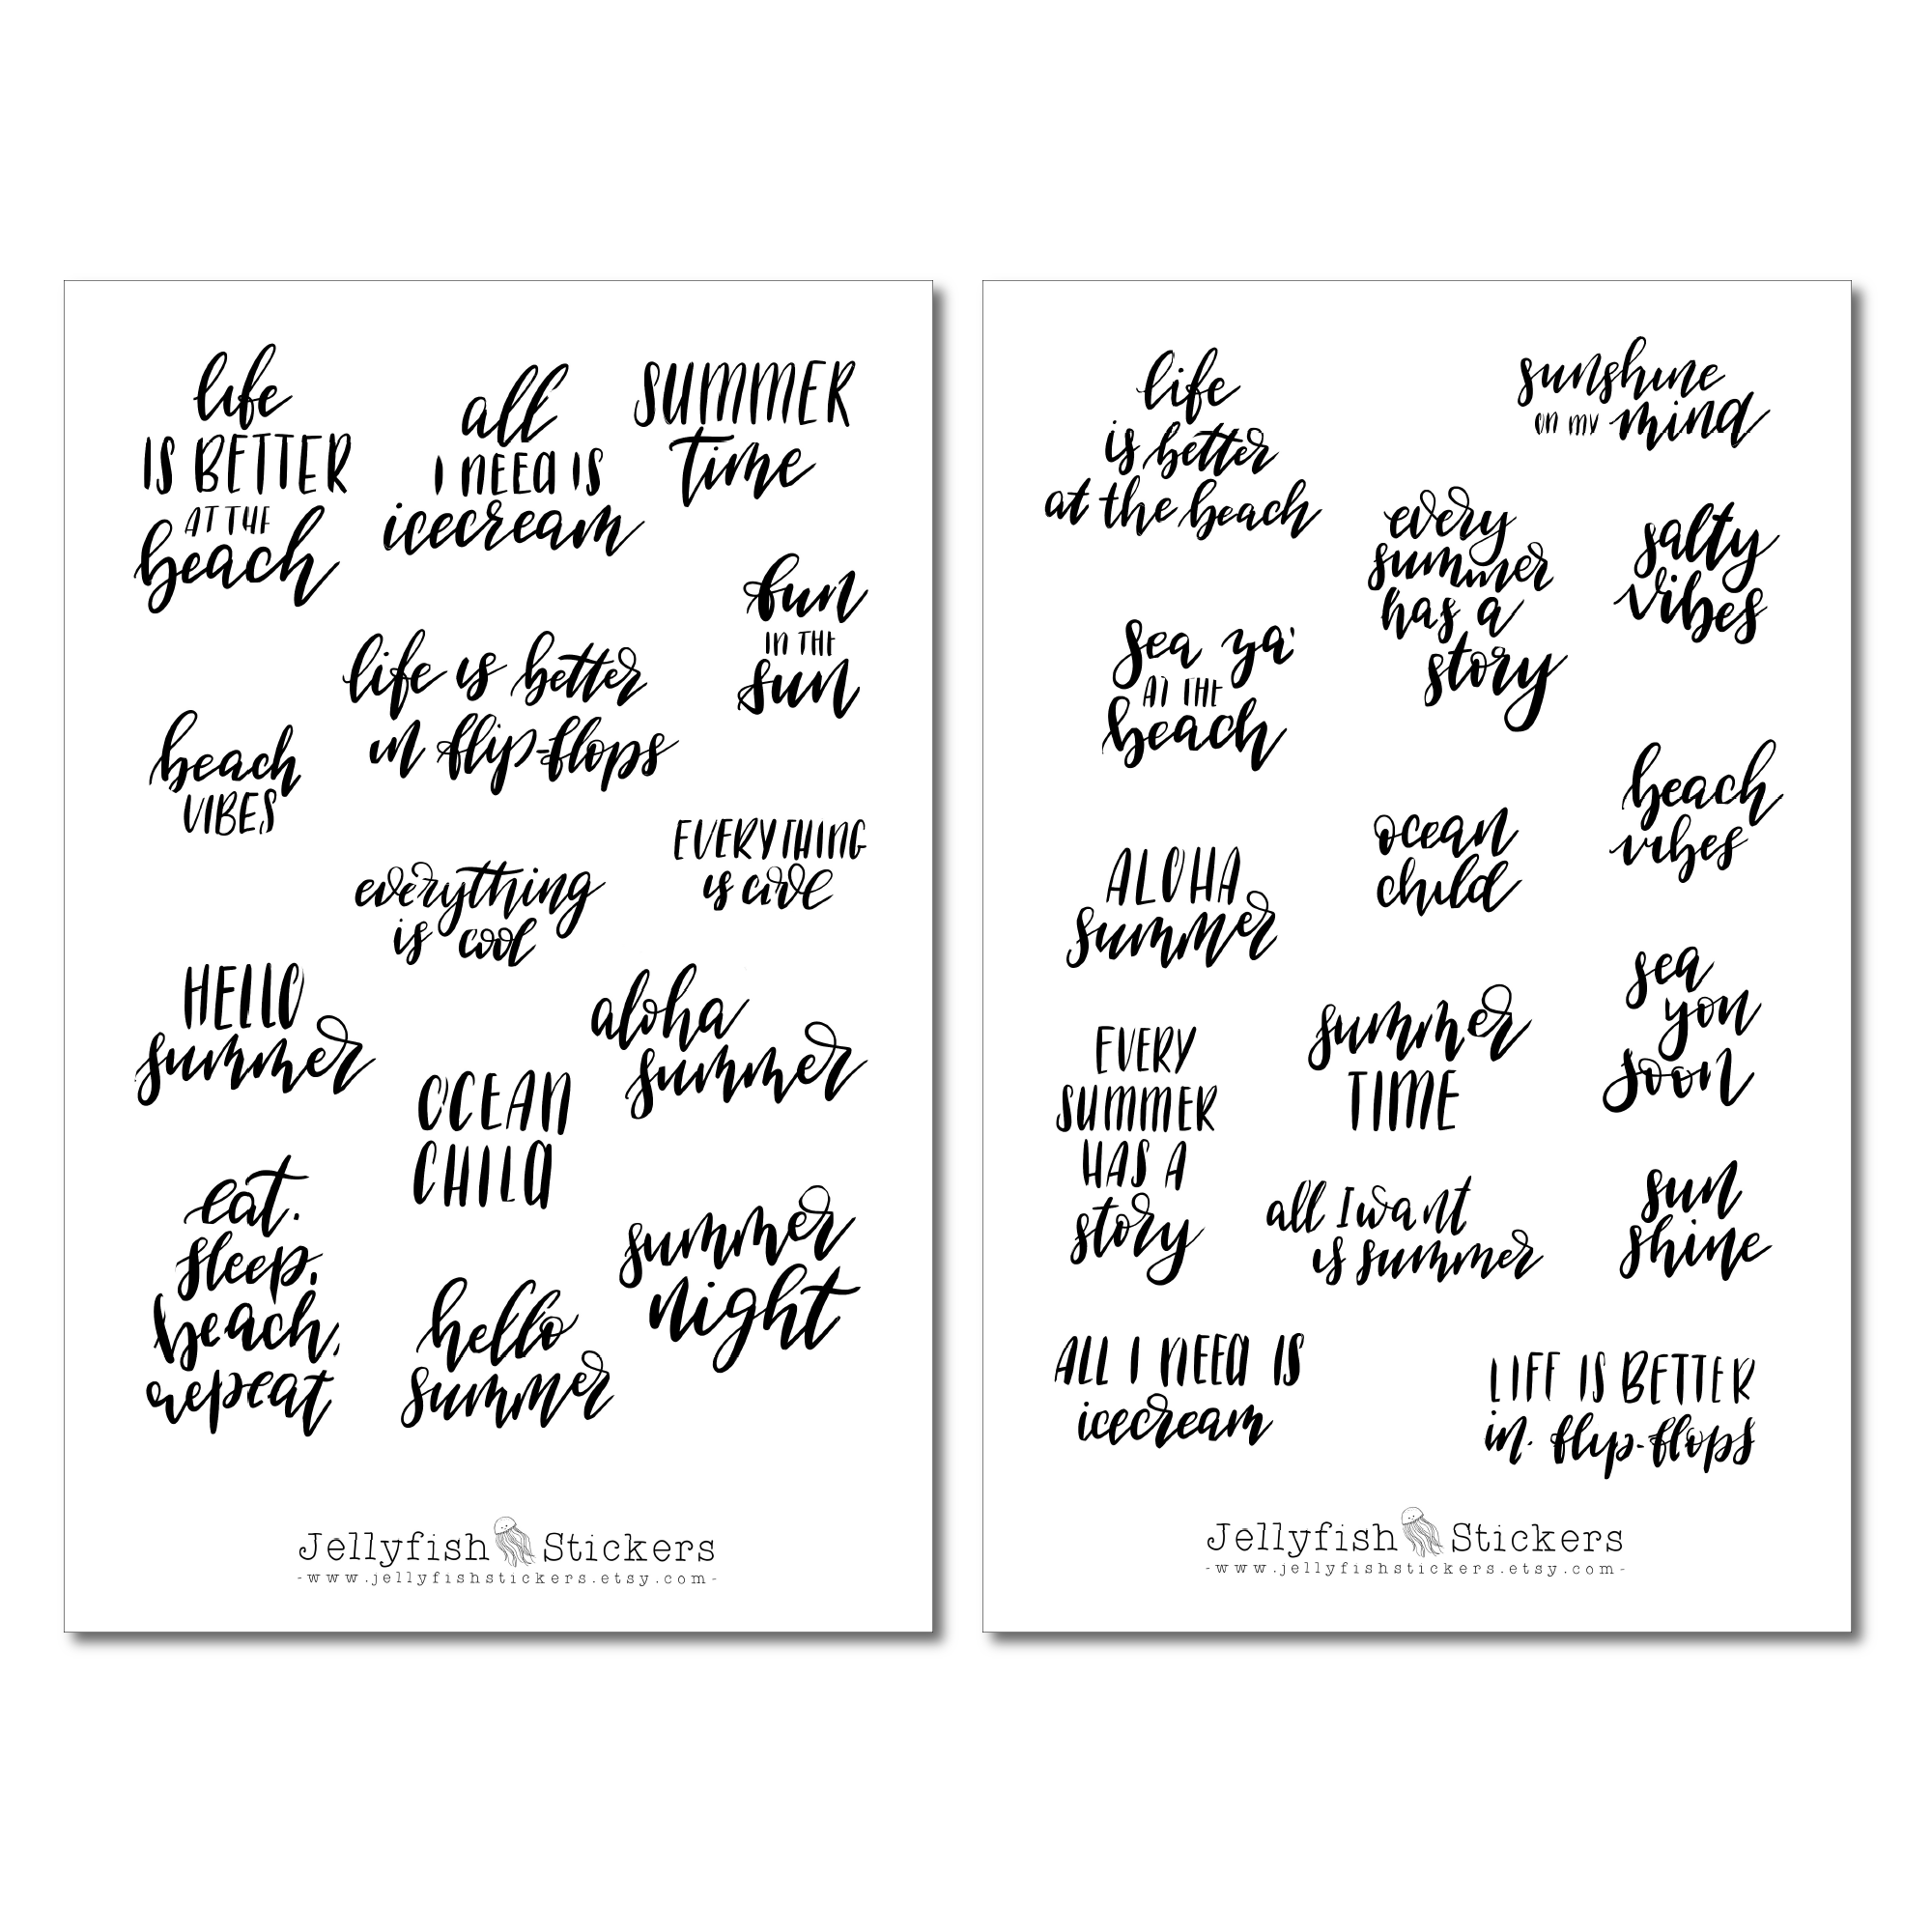 life
IS BETTER
AT THE
beach
all
I NEED IS
icecream
SUMMER
time
fun
IN THE
sun
life is better
in flip-flops
beach
VIBES
EVERYTHING
is
everything
is cool
HELLO
summer
aloha
summer
OCEAN
CHILD
eat.
sleep,
beach,
repeat
hello
summer
summer
night
Jellyfish Stickers
-www.jellyfishstickers.etsy.com-
life
is better
at the beach
sunshine
on my mind
every
summer
has a
story
salty
vibes
sea ya'
AT THE
beach
beach
vibes
ocean
child
ALOHA
summer
sea
you
soon
EVERY
SUMMER
HAS A
story
summer
TIME
all I want
is summer
sun
shine
ALL I NEED IS
icecream
LIFE IS BETTER
in flip-flops
Jellyfish Stickers
-www.jellyfishstickers.etsy.com-